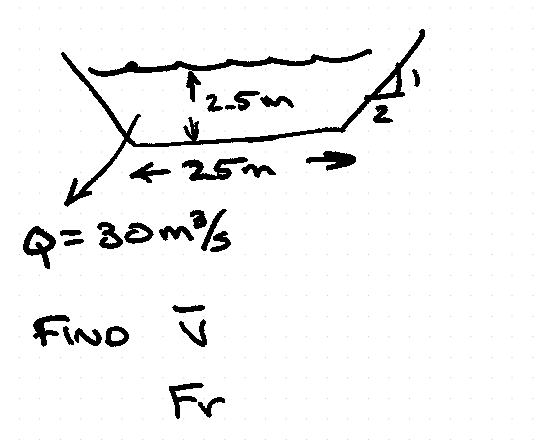 2.5m
1
2
25m
Q = 30 m³/s
FIND V̄
Fr